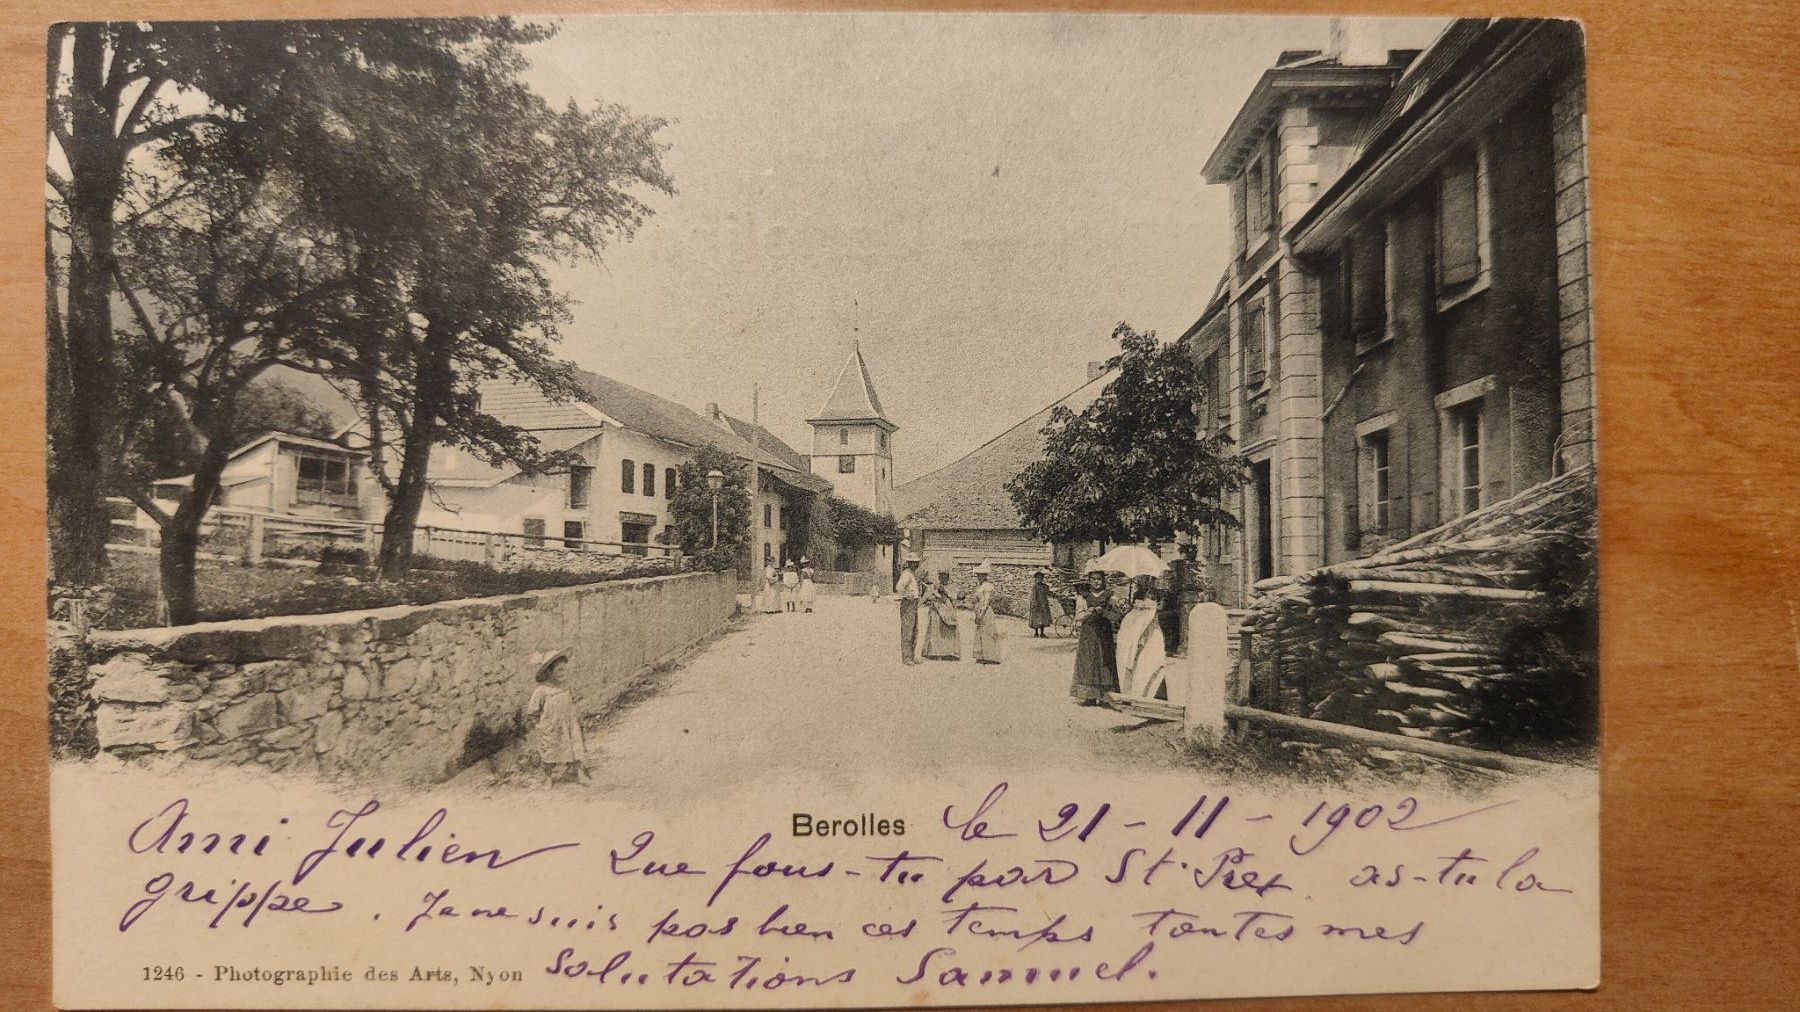 Berolles le 21 - 11 - 1902
Ami Julien Que fous-tu par St. Prex. as-tu la
grippe. Je ne suis pas bien ces temps toutes mes
salutations Samuel.
1246 - Photographie des Arts, Nyon